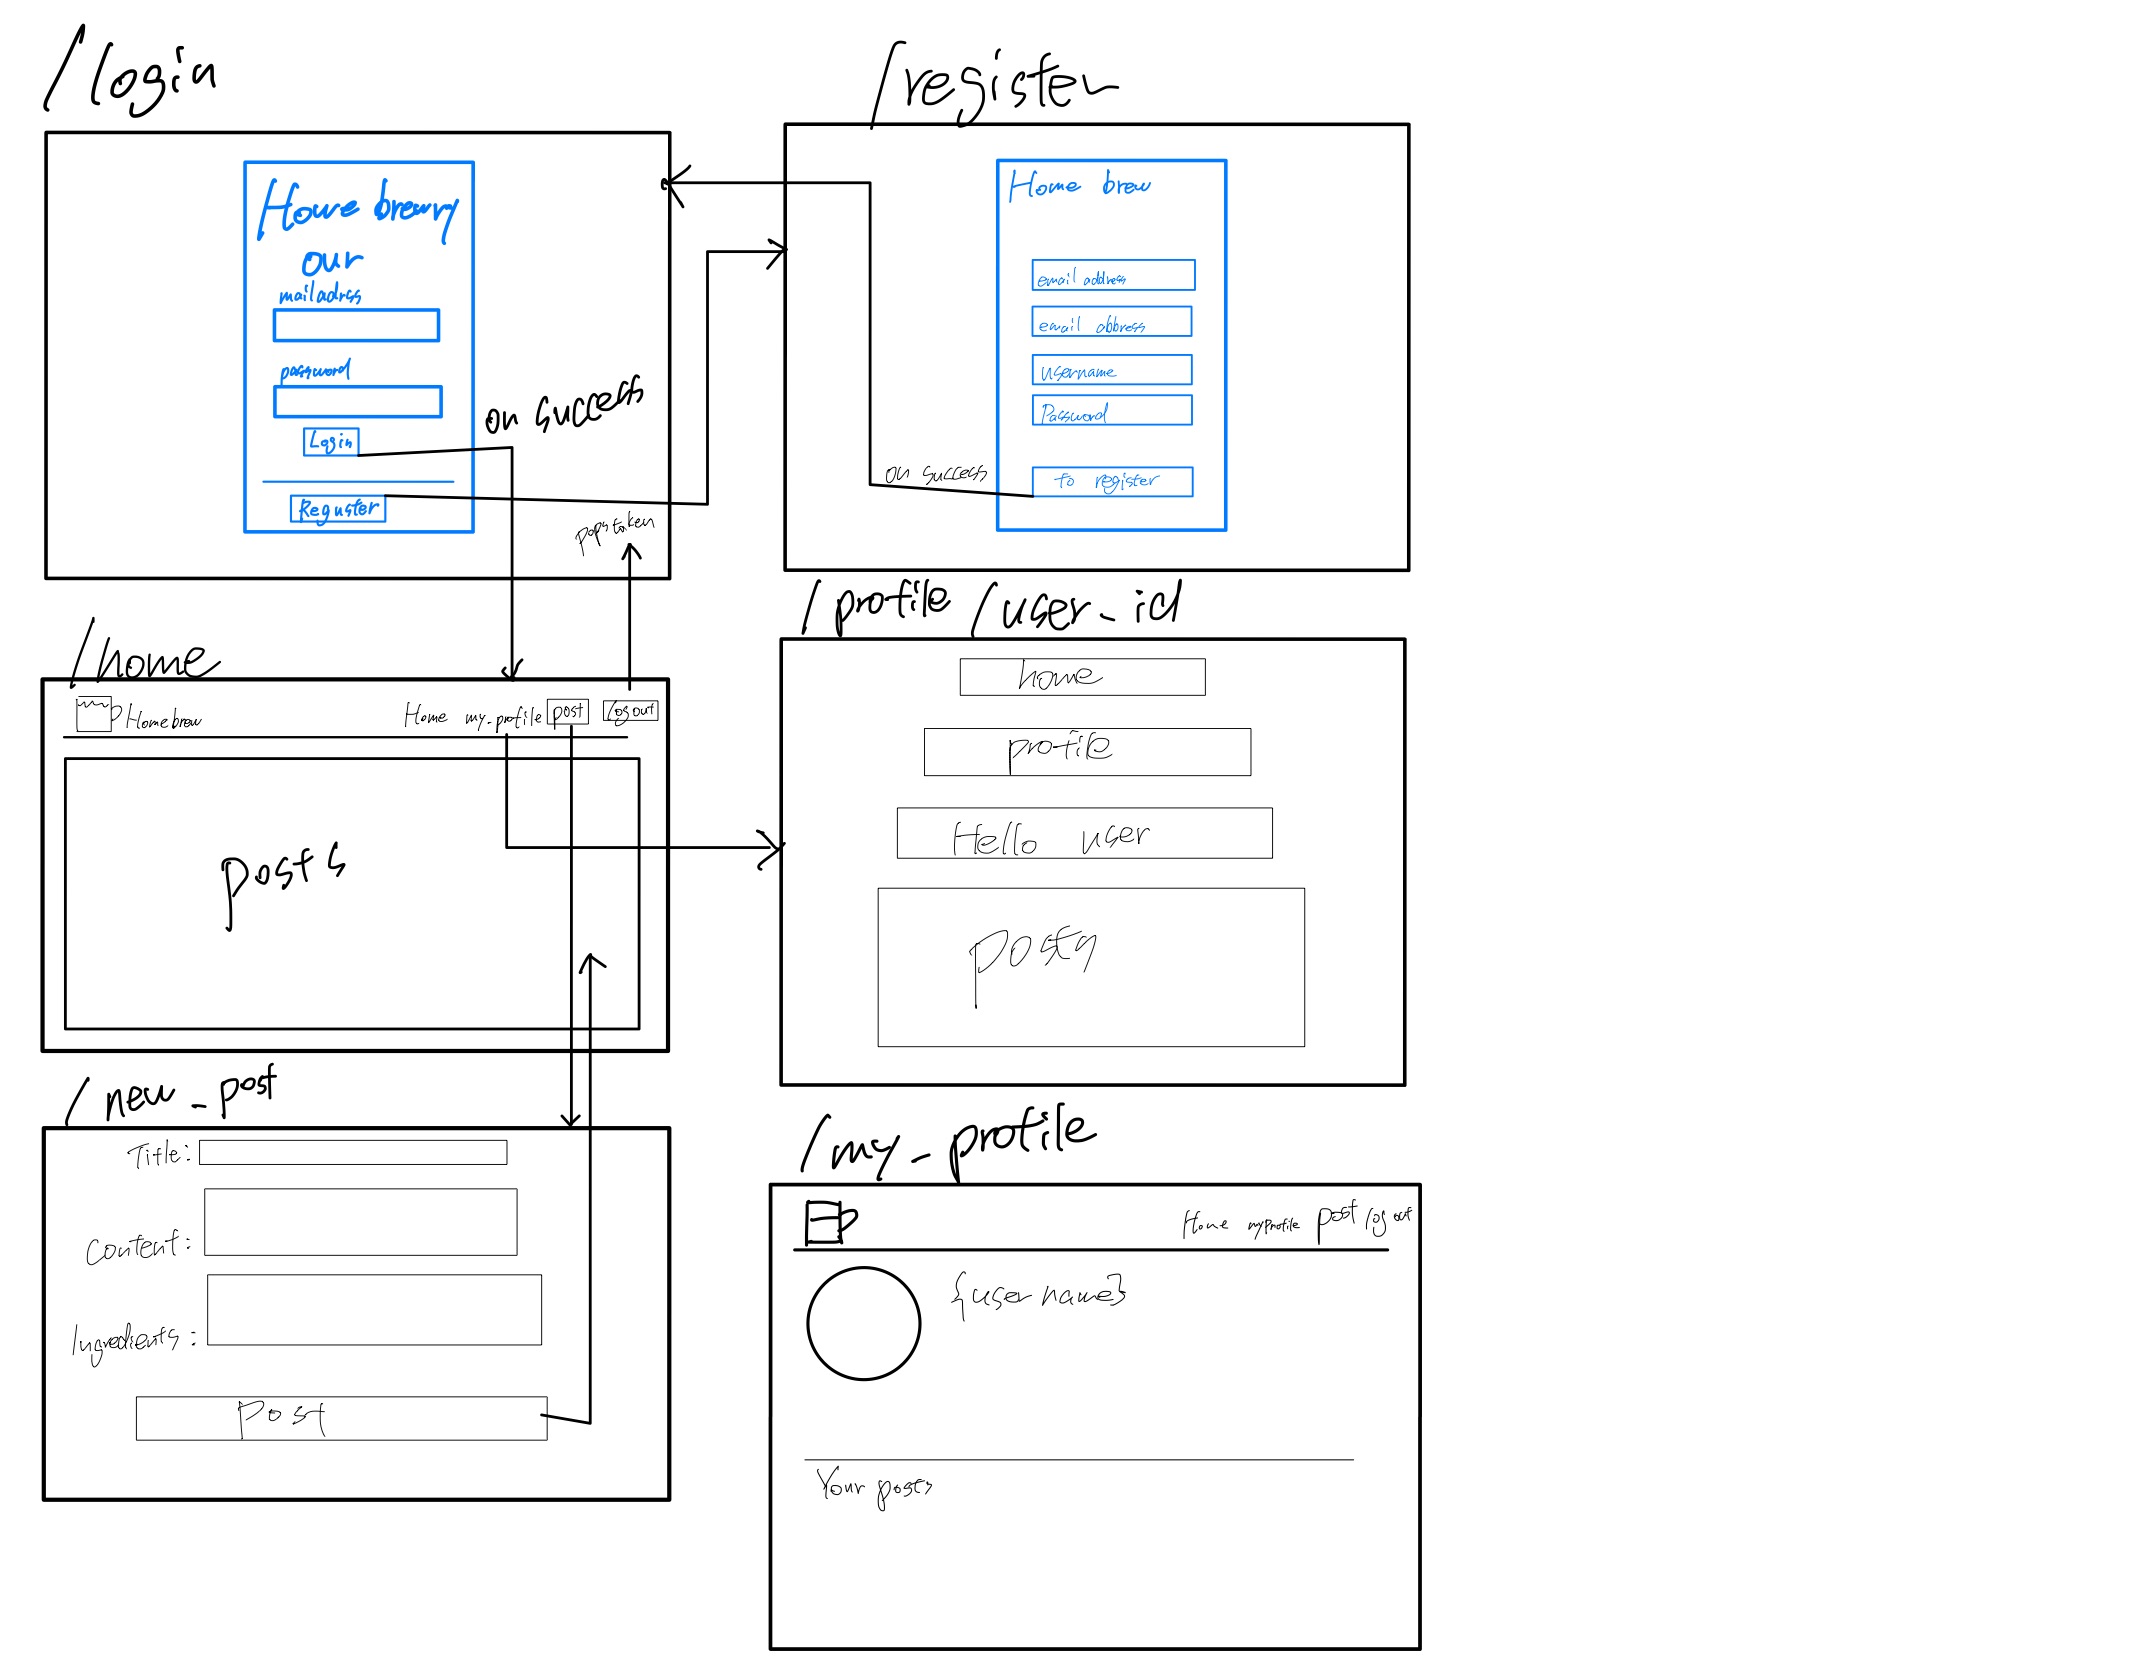 /login
Home brewry
our
mailadrss
password
Login
on success
Reguster
pops token
/register
Home brew
email address
email abbress
username
Password
to register
on success
/home
Homebrew
Home my_profile post logout
posts
/profile/user_id
home
profile
Hello user
posts
/new_post
Title:
Content:
Ingredients:
Post
/my_profile
Home myprofile post logout
{username}
Your posts